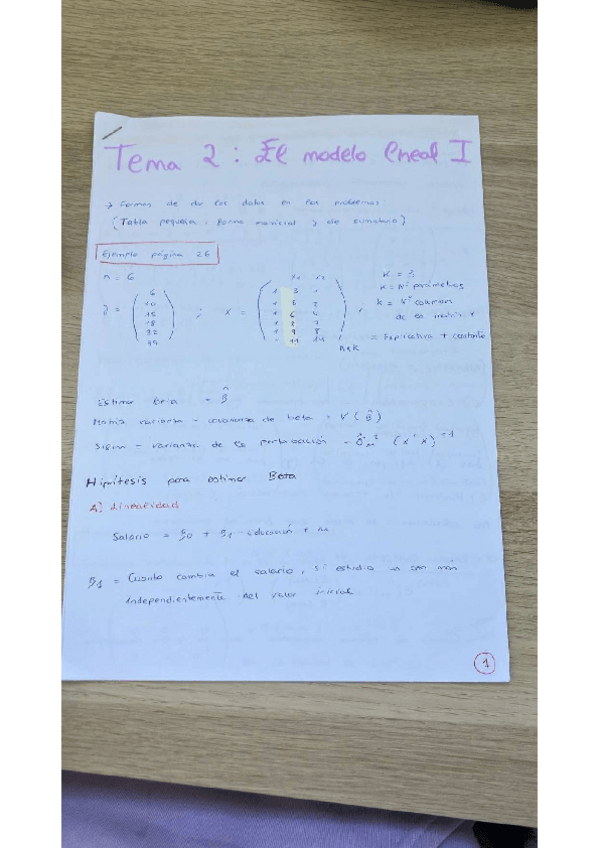 Tema 2 : El modelo lineal I
→ Formas de dar los datos en los problemas
(Tabla pequeña, forma matricial y de sumatorio)
Ejemplo página 26
n = 6
x1 x2
K = 3
K = Nº parámetros
k = Nº columnas
de la matriz x
= Explicativa + constante
y = ( 6 10 15 18 32 ) ; x = ( 1 3 1
1 2
1 6 4
1 8 7
1 9 8
11 14 ) ,
nxk
Estimar Beta = β̂
Matriz varianza - covarianza de beta = V(β̂)
Sigma - varianza de la perturbación = σ̂u² (x'x)⁻¹
Hipótesis para estimar Beta
A) Linealidad
Salario = β0 + β1 educación + u
β1 = Cuanto cambia el salario, si estudio un año más
independientemente del valor inicial
1